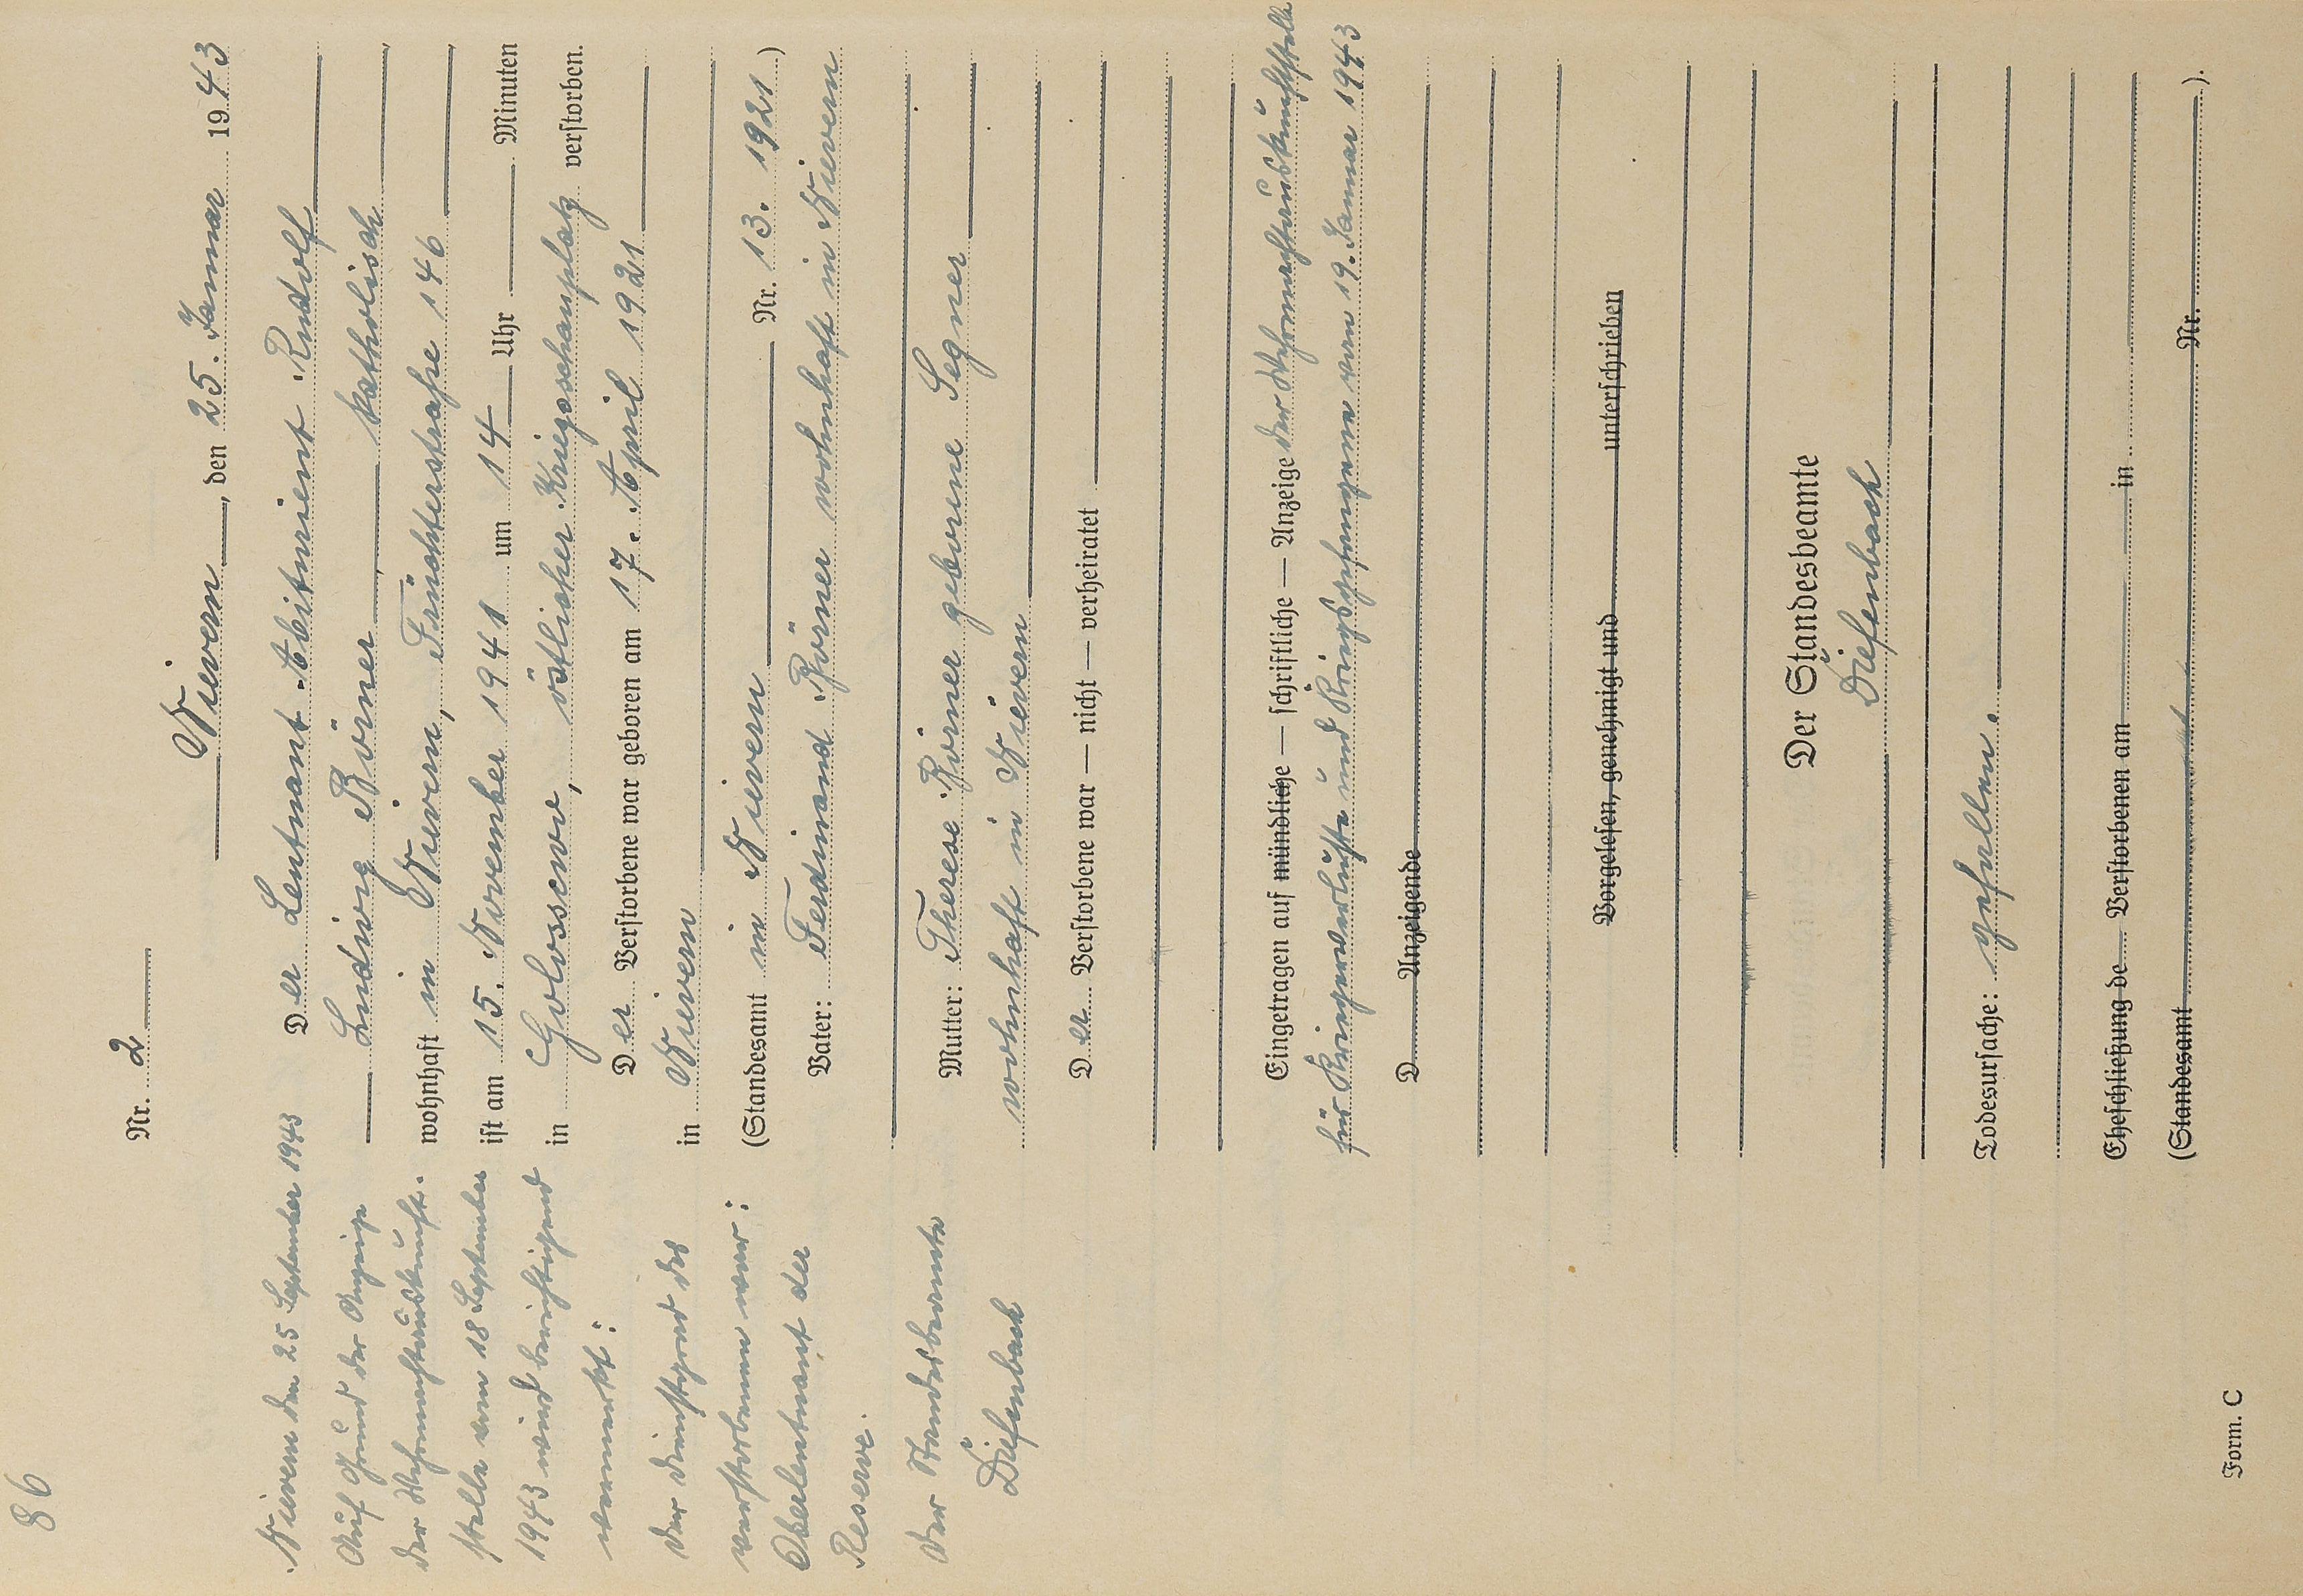 86
Nr. 2
Nievern, den 25. Januar 1943
Der Leutnant Abiturient Rudolf
Ludwig Börner katholisch
wohnhaft in Nievern, Früchterstraße 146
ist am 15. November 1941 um 14 Uhr Minuten
in Golossowo, östlicher Kriegsschauplatz verstorben.
Der Verstorbene war geboren am 17. April 1921
in Nievern
(Standesamt in Nievern Nr. 13. 1921)
Vater: Ferdinand Börner wohnhaft in Nievern
Mutter: Therese Börner geborene Segner
wohnhaft in Nievern
Der Verstorbene war — nicht — verheiratet
Eingetragen auf mündliche — schriftliche — Anzeige der Wehrmachtauskunftstelle
für Kriegerverluste und Kriegsgefangene vom 19. Januar 1943
D Anzeigende
Vorgelesen, genehmigt und unterschrieben
Der Standesbeamte
Diefenbach
Todesursache: gefallen.
Eheschließung de Verstorbenen am in
(Standesamt Nr. ).
Nievern den 25 September 1943
Auf Grund der Anzeige
der Wehrmachtauskunft-
stelle vom 18 September
1943 wird berichtigend
vermerkt:
der Dienstgrad des
verstorbenen war:
Oberleutnant der
Reserve.
Der Standesbeamte
Diefenbach
Form. C